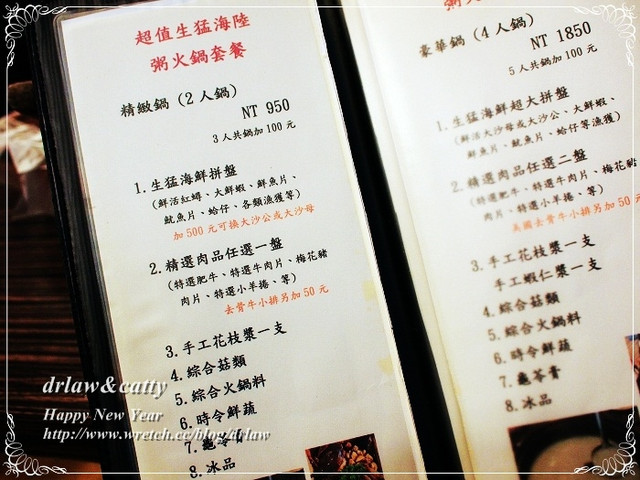 超值生猛海陸
粥火鍋套餐
精緻鍋（2人鍋）
NT 950
3人共鍋加100元
1.生猛海鮮拼盤
（鮮活紅蟳、大鮮蝦、鮮魚片、
魷魚片、蛤仔、各類漁獲等）
加500元可換大沙公或大沙母
2.精選肉品任選一盤
（特選肥牛、特選牛肉片、梅花豬
肉片、特選小羊捲、等）
去骨牛小排另加50元
3.手工花枝漿一支
4.綜合菇類
5.綜合火鍋料
6.時令鮮蔬
7.龜苓膏
8.冰品
粥火
豪華鍋（4人鍋）
NT 1850
5人共鍋加100元
1.生猛海鮮超大拼盤
（鮮活大沙母或大沙公、大鮮蝦、
鮮魚片、魷魚片、蛤仔等漁獲）
2.精選肉品任選二盤
（特選肥牛、特選牛肉片、梅花豬
肉片、特選小羊捲、等）
美國去骨牛小排另加50元
3.手工花枝漿一支
手工蝦仁漿一支
4.綜合菇類
5.綜合火鍋料
6.時令鮮蔬
7.龜苓膏
8.冰品
drlaw&catty
Happy New Year
http://www.wretch.cc/blog/drlaw